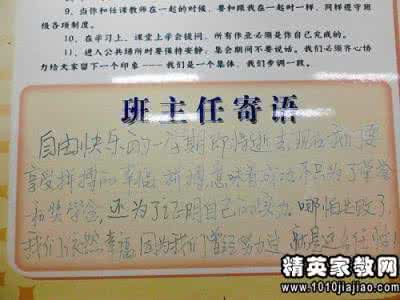 9、当你和任课教师在一起的时候,要和跟我在一起时一样,同样遵守班
级各项制度。
10、在学习上,课堂上学会提问,所有作业必须是你自己完成的。
11、进入公共场所时要保持安静;集会期间不要说话。我们必须齐心协
力给大家留下一个印象——我们是一个集体,我们步调一致。
班主任寄语
自由快乐的一星期即将逝去现在我们要
享受拼搏的幸福 拼搏意味着成功不只为了荣誉
和奖学金,还为了证明自己的 哪怕失败了
我们依然幸福 因为我们曾经努力过
精英家教网
www.1010jiajiao.com